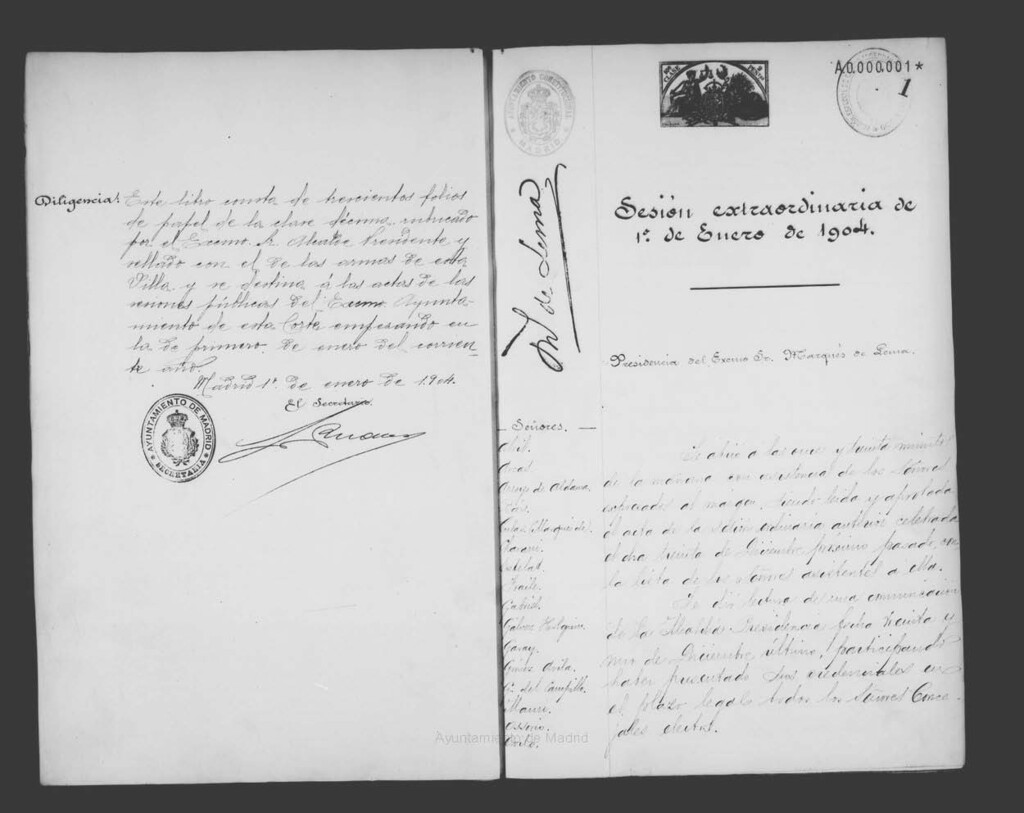 Diligencia: Este libro consta de trescientos folios
de papel de la clase décima, rubricado
por el Excmo. Sr. Alcalde Presidente y
sellado con el de las armas de esta
Villa y se destina á las actas de las
sesiones públicas del Excmo. Ayunta-
miento de esta Corte empezando en
la de primero de enero del corrien-
te año.
Madrid 1º de enero de 1904.
El Secretario.
AYUNTAMIENTO DE MADRID
SECRETARIA
AYUNTAMIENTO CONSTITUCIONAL
MADRID
M. de Lema
A0.000.001*
1
Sesión extraordinaria de
1º de Enero de 1904.
Presidencia del Excmo Sr. Marqués de Lema.
Señores.
Abril.
Arcas
de Aldama.
(Marqués de)
Catalat.
Fraile.
Gabriel.
Gálvez Holguín.
Garay.
Ávila.
G. del Campillo.
Mauri.
Ossorio.
Se abrió a las once y treinta minutos
de la mañana con asistencia de los Señores
expresados al margen, siendo leida y aprobada
el acta de la sesión ordinaria anterior celebrada
el dia treinta de Diciembre próximo pasado, con
la lista de los Señores asistentes a ella.
Se dió lectura de una comunicación
de la Alcaldía Presidencia fecha treinta y
uno de Diciembre último, participando
haber presentado sus credenciales en
el plazo legal todos los Señores Conce-
jales electos.
Ayuntamiento de Madrid